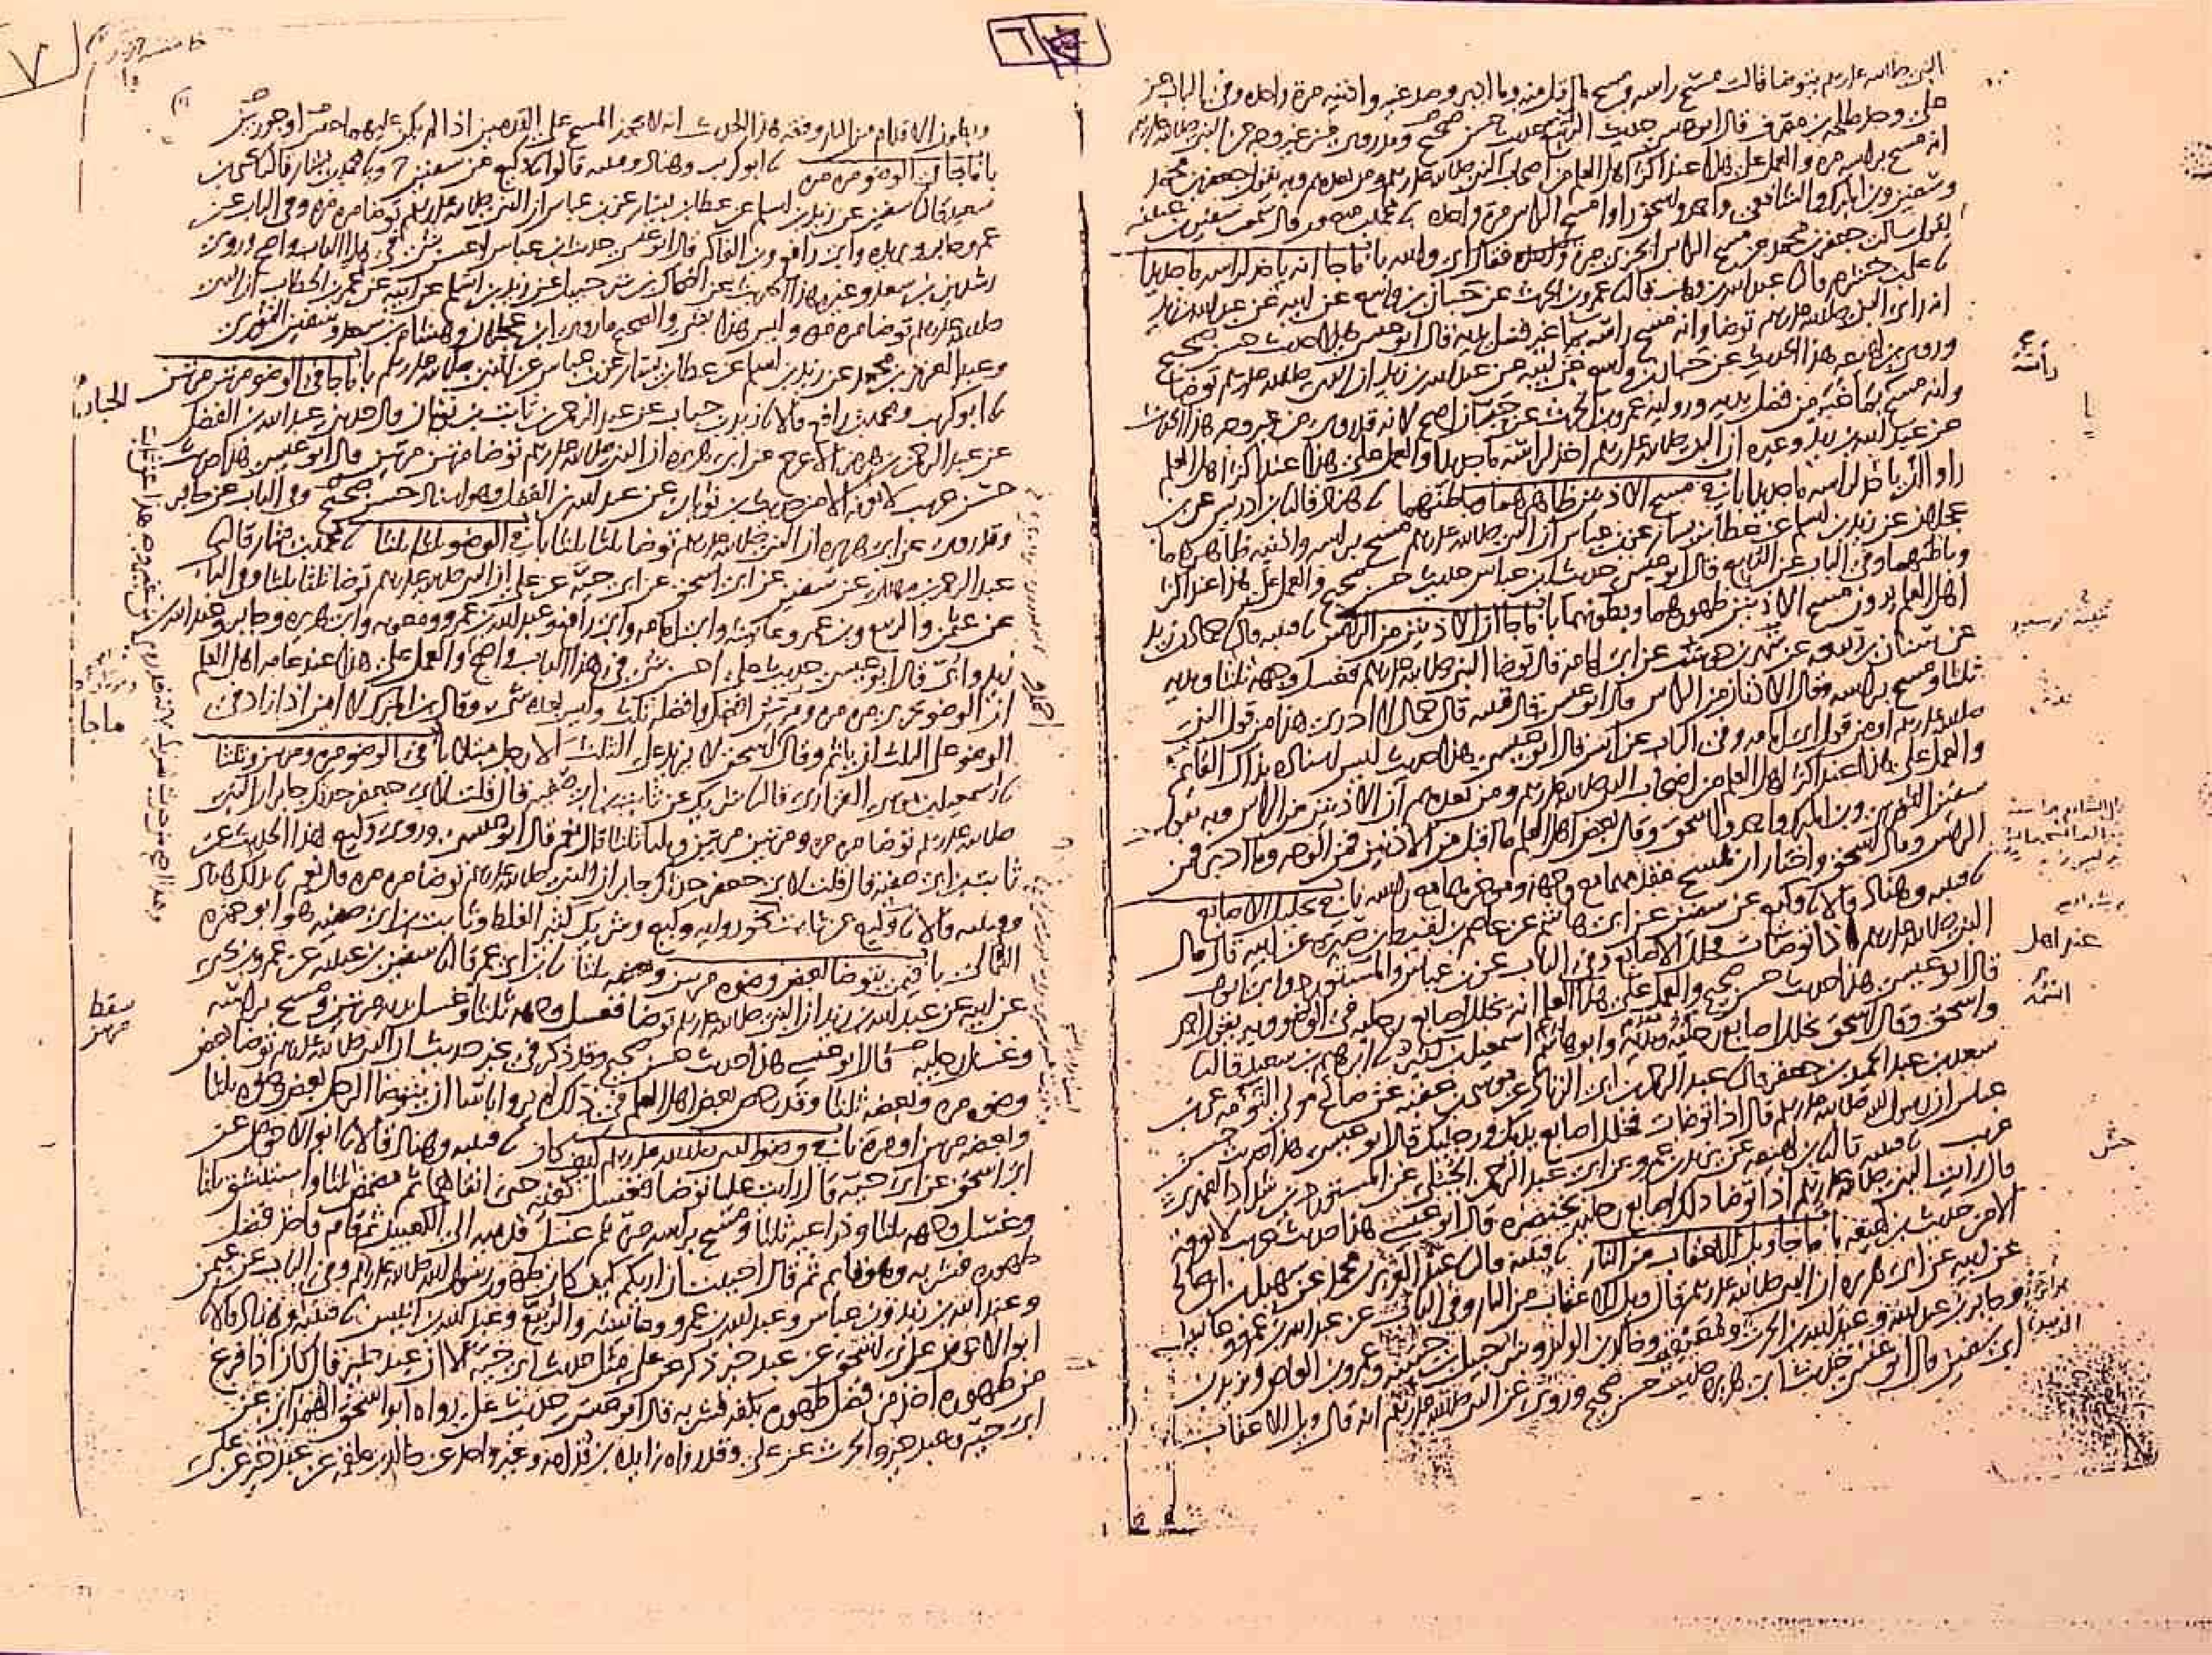 النبي صلى الله عليه وسلم يتوضا قالت مسح راسه ومسح ما اقبل منه وما ادبر وصدغيه واذنيه مرة واحده وفي الباب عن
علي وجد طلحه بن مصرف قال ابو عيسى حديث الربيع حديث حسن صحيح وقد روى من غير وجه عن النبي صلى الله عليه وسلم
انه مسح براسه مره والعمل على هذا عند اكثر اهل العلم من اصحاب النبي صلى الله عليه وسلم ومن بعدهم وبه يقول جعفر بن محمد
وسفين وبن المبارك والشافعي واحمد واسحق راوا مسح الراس مرة واحده محمد بن منصور قال سمعت سفين بن عيينه
يقول سالت جعفر بن محمد عن مسح الراس ايجزي مرة فقال اي والله باب ما جا انه ياخذ لراسه ما جديدا
علي بن خشرم قال عبد الله بن وهب قال عمرو بن الحرث عن حبان بن واسع عن ابيه عن عبد الله بن زيد
انه راى النبي صلى الله عليه وسلم توضا وانه مسح راسه بما غير فضل يديه قال ابو عيسى هذا حديث حسن صحيح
وروى بن لهيعه هذا الحديث عن حبان بن واسع عن ابيه عن عبد الله بن زيد ان النبي صلى الله عليه وسلم توضا
وانه مسح بما غبر من فضل يديه ورواية عمرو بن الحرث عن حبان اصح لانه قد روى من غير وجه هذا الحديث
عن عبد الله بن زيد وغيره ان النبي صلى الله عليه وسلم اخذ لراسه ما جديدا والعمل على هذا عند اكثر اهل العلم
راوا ان ياخذ لراسه ما جديدا باب في مسح الاذنين ظاهرهما وباطنهما هناد قال بن ادريس عن بن
عجلان عن زيد بن اسلم عن عطا بن يسار عن بن عباس ان النبي صلى الله عليه وسلم مسح براسه واذنيه ظاهرهما
وباطنهما وفي الباب عن الربيع قال ابو عيسى حديث بن عباس حديث حسن صحيح والعمل على هذا عند اكثر
اهل العلم يرون مسح الاذنين ظهورهما وبطونهما باب ما جا ان الاذنين من الراس قتيبه قال حماد بن زيد
عن سنان بن ربيعه عن شهر بن حوشب عن ابي امامه قال توضا النبي صلى الله عليه وسلم فغسل وجهه ثلثا ويديه
ثلثا ومسح براسه وقال الاذنان من الراس قال ابو عيسى قال قتيبه قال حماد لا ادري هذا من قول النبي
صلى الله عليه وسلم او من قول ابي امامه وفي الباب عن انس قال ابو عيسى هذا حديث ليس اسناده بذاك القائم
والعمل على هذا عند اكثر اهل العلم من اصحاب النبي صلى الله عليه وسلم ومن بعدهم ان الاذنين من الراس وبه يقول
سفين الثوري وبن المبارك واحمد واسحق وقال بعض اهل العلم ما اقبل من الاذنين فمن الوجه وما ادبر فمن
الراس وقال اسحق واختار ان يمسح مقدمهما مع وجهه وموخرهما مع راسه باب في تخليل الاصابع
قتيبه وهناد قالا وكيع عن سفين عن ابي هاشم عن عاصم بن لقيط بن صبره عن ابيه قال قال
النبي صلى الله عليه وسلم اذا توضات فخلل الاصابع وفي الباب عن بن عباس والمستورد وابي ايوب
قال ابو عيسى هذا حديث حسن صحيح والعمل على هذا عند اهل العلم انه يخلل اصابع رجليه في الوضو وبه يقول احمد
واسحق وقال اسحق يخلل اصابع رجليه ويديه وابو هاشم اسمعيل بن كثير ابرهيم بن سعيد قال
سعد بن عبد الحميد بن جعفر قال عبد الرحمن بن ابي الزناد عن موسى بن عقبه عن صالح مولى التومه عن بن
عباس ان رسول الله صلى الله عليه وسلم قال اذا توضات فخلل اصابع يديك ورجليك قال ابو عيسى هذا حديث حسن
غريب قتيبه قال بن لهيعه عن يزيد بن عمرو عن ابي عبد الرحمن الحبلي عن المستورد بن شداد الفهري
قال رايت النبي صلى الله عليه وسلم اذا توضا دلك اصابع رجليه بخنصره قال ابو عيسى هذا حديث غريب لا نعرفه
الا من حديث بن لهيعه باب ما جا ويل للاعقاب من النار قتيبه قال عبد العزيز بن محمد عن سهيل بن ابي صالح
عن ابيه عن ابي هريره ان النبي صلى الله عليه وسلم قال ويل للاعقاب من النار وفي الباب عن عبد الله بن عمرو وعايشه
وجابر بن عبد الله وعبد الله بن الحرث ومعيقيب وخالد بن الوليد وشرحبيل بن حسنه وعمرو بن العاص ويزيد بن
ابي سفين قال ابو عيسى حديث ابي هريره حديث حسن صحيح وروى عن النبي صلى الله عليه وسلم انه قال ويل للاعقاب
عند اهل
٦
٧
وبطون الاقدام من النار وفقه هذا الحديث انه لا يجوز المسح على القدمين اذا لم يكن عليهما خفين او جوربين
باب ما جا في الوضو مره مره ابو كريب وهناد وقتيبه قالوا وكيع عن سفين ح ومحمد بن بشار قال يحيى بن
سعيد قال سفين عن زيد بن اسلم عن عطا بن يسار عن بن عباس ان النبي صلى الله عليه وسلم توضا مره مره وفي الباب عن
عمر وجابر وبريده وابي رافع وبن الفاكه قال ابو عيسى حديث بن عباس احسن شي في هذا الباب واصح وروى
رشدين بن سعد وغيره هذا الحديث عن الضحاك بن شرحبيل عن زيد بن اسلم عن ابيه عن عمر بن الخطاب ان النبي
صلى الله عليه وسلم توضا مره مره وليس هذا بشي والصحيح ما روى بن عجلان وهشام بن سعد وسفين الثوري
وعبد العزيز بن محمد عن زيد بن اسلم عن عطا بن يسار عن بن عباس عن النبي صلى الله عليه وسلم باب ما جا في الوضو مرتين مرتين
ابو كريب ومحمد بن رافع قالا زيد بن حباب عن عبد الرحمن بن ثابت بن ثوبان قال حدثني عبد الله بن الفضل
عن عبد الرحمن بن هرمز الاعرج عن ابي هريره ان النبي صلى الله عليه وسلم توضا مرتين مرتين قال ابو عيسى هذا حديث
حسن غريب لا نعرفه الا من حديث بن ثوبان عن عبد الله بن الفضل وهو اسناد حسن صحيح وفي الباب عن جابر
وقد روى عن ابي هريره ان النبي صلى الله عليه وسلم توضا ثلثا ثلثا باب في الوضو ثلثا ثلثا محمد بن بشار قال
عبد الرحمن بن مهدي عن سفين عن ابي اسحق عن ابي حيه عن علي ان النبي صلى الله عليه وسلم توضا ثلثا ثلثا وفي الباب
عن عثمن والربيع وبن عمر وعايشه وابي امامه وابي رافع وعبد الله بن عمرو ومعويه وابي هريره وجابر وعبد الله بن
زيد وابي قال ابو عيسى حديث علي احسن شي في هذا الباب واصح والعمل على هذا عند عامه اهل العلم
ان الوضو يجزي مره مره ومرتين افضل وافضله ثلث وليس بعده شي وقال بن المبرك لا امن اذا زاد في
الوضو على الثلث ان ياثم وقال اسحق لا يزيد على الثلث الا رجل مبتلا باب في الوضو مره ومرتين وثلثا
اسمعيل بن موسى الفزاري قال شريك عن ثابت بن ابي صفيه قال قلت لابي جعفر حدثك جابر ان النبي
صلى الله عليه وسلم توضا مره مره ومرتين مرتين وثلثا ثلثا قال نعم قال ابو عيسى وروى وكيع هذا الحديث عن
ثابت بن ابي صفيه قال قلت لابي جعفر حدثك جابر ان النبي صلى الله عليه وسلم توضا مره مره قال نعم بذلك هناد
وقتيبه قالا وكيع عن ثابت نحو روايه وكيع وشريك كثير الغلط وثابت بن ابي صفيه هو ابو حمزه
الثمالي باب فيمن يتوضا بعض وضوه مرتين وبعضه ثلثا بن ابي عمر قال سفين بن عيينه عن عمرو بن يحيى
عن ابيه عن عبد الله بن زيد ان النبي صلى الله عليه وسلم توضا فغسل وجهه ثلثا وغسل يديه مرتين ومسح براسه
وغسل رجليه قال ابو عيسى هذا حديث حسن صحيح وقد ذكر في غير حديث ان النبي صلى الله عليه وسلم توضا بعض
وضوه مره وبعضه ثلثا وقد رخص بعض اهل العلم في ذلك لم يروا باسا ان يتوضا الرجل بعض وضوه ثلثا
وبعضه مرتين او مرة باب في وضو النبي صلى الله عليه وسلم كيف كان قتيبه وهناد قالا ابو الاحوص عن
ابي اسحق عن ابي حيه قال رايت عليا توضا فغسل كفيه حتى انقاهما ثم مضمض ثلثا واستنشق ثلثا
وغسل وجهه ثلثا وذراعيه ثلثا ومسح براسه مرة ثم غسل قدميه الى الكعبين ثم قام فاخذ فضل
طهوره فشربه وهو قايم ثم قال احببت ان اريكم كيف كان طهور رسول الله صلى الله عليه وسلم وفي الباب عن عثمن
وعبد الله بن زيد وبن عباس وعبد الله بن عمرو وعايشه والربيع وعبد الله بن انيس قتيبه وهناد قالا
ابو الاحوص عن ابي اسحق عن عبد خير ذكر عن علي مثل حديث ابي حيه الا ان عبد خير قال كان اذا فرغ
من طهوره اخذ من فضل طهوره بكفه فشربه قال ابو عيسى حديث علي رواه ابو اسحق الهمداني عن
ابي حيه وعبد خير والحرث عن علي وقد رواه زايده بن قدامه وغير واحد عن خالد بن علقمه عن عبد خير عن علي
الحباب
ماجا
سقط
مرتين